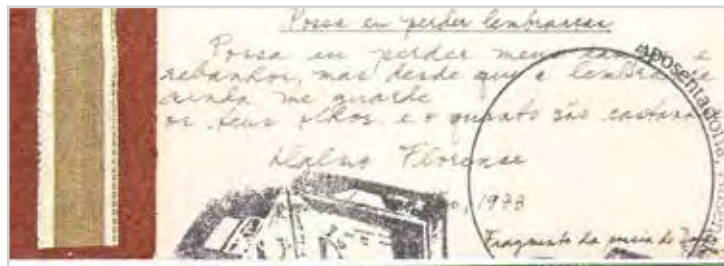 Possa eu perder lembranças
Possa eu perder meus e
rebanhos, mas desde que a lembrança
ainda me guarde
os teus olhos e o quanto são
Dalmo Florense
1973
Fragmento da poesia de
aposentadoria